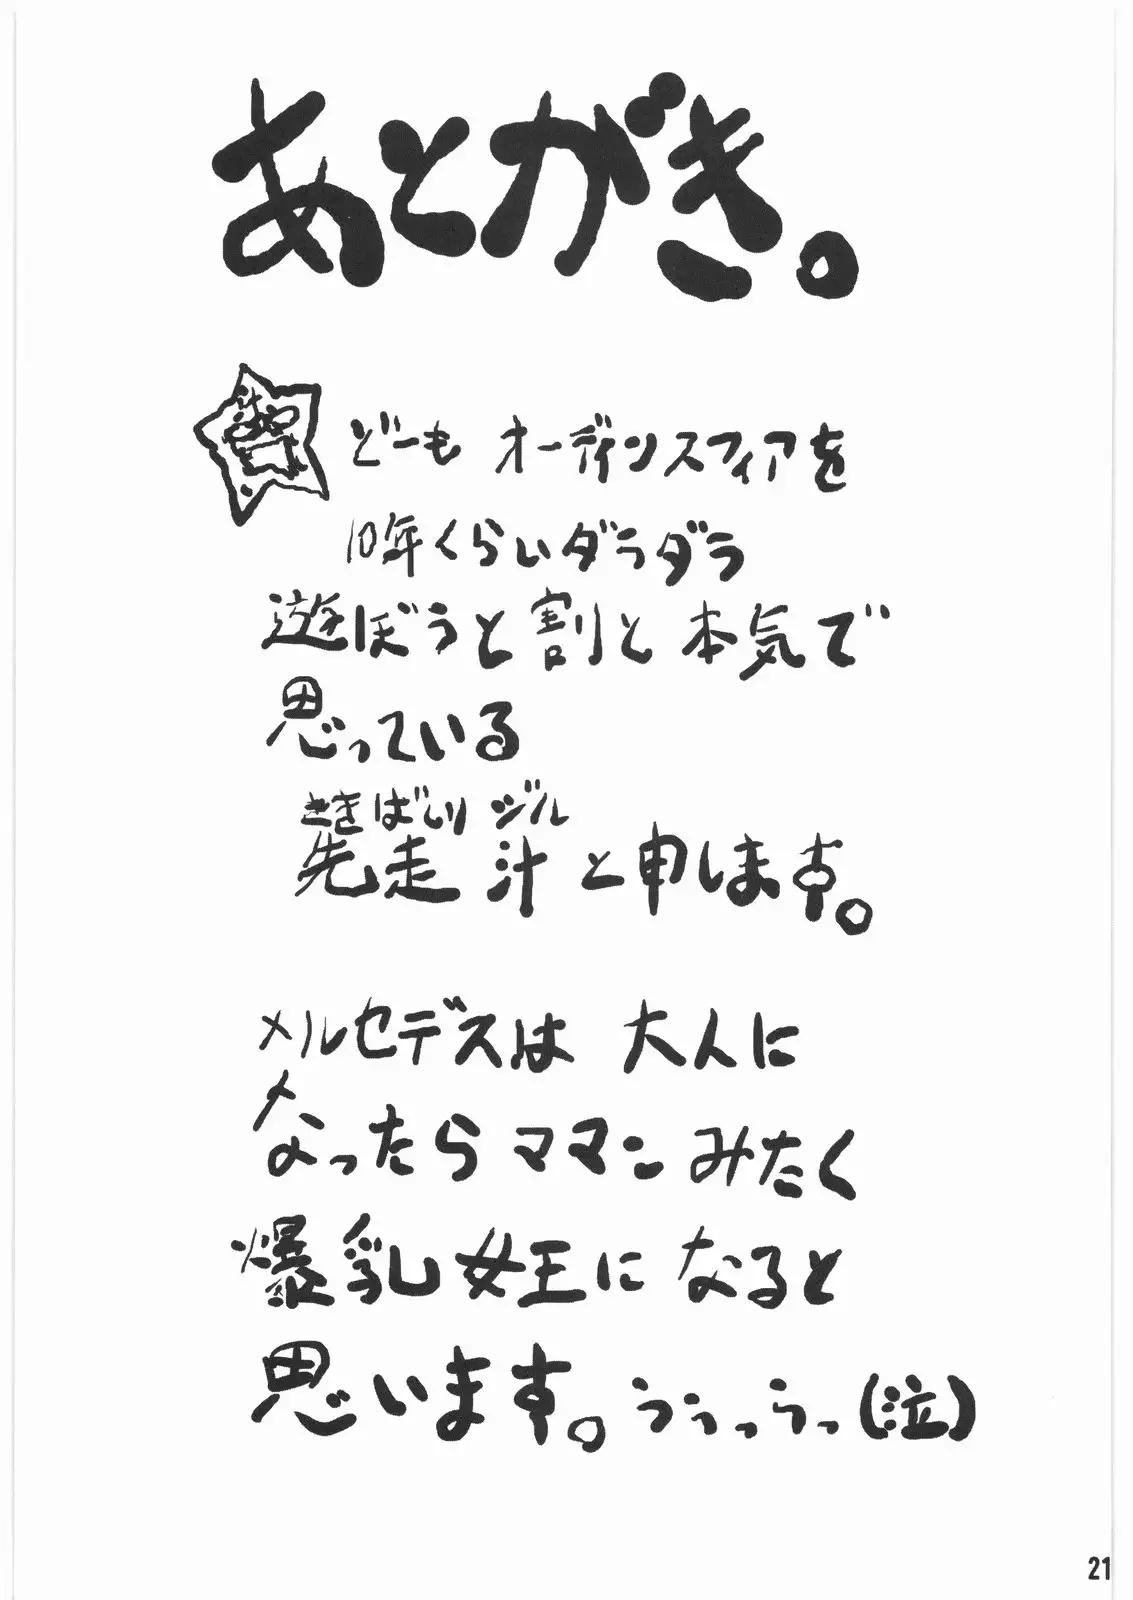 あとがき。
どーも オーディンスフィアを
10年くらいダラダラ
遊ぼうと割と本気で
思っている
さきばしり ジル
先走 汁と申します。
メルセデスは 大人に
なったらママン みたく
爆乳女王に なると
思います。うぅっうっ(泣)
21